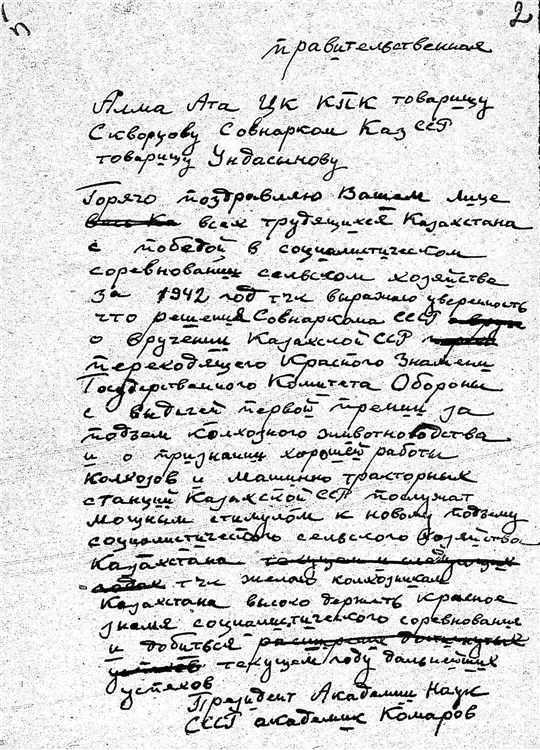 2
правительственная
Алма Ата ЦК КПК товарищу
Скворцову Совнарком Каз ССР
товарищу Ундасынову
Горячо поздравляю Вашем лице
всех трудящихся Казахстана
с победой в социалистическом
соревновании сельском хозяйстве
за 1942 год тчк выражаю уверенность
что решения Совнаркома СССР
о вручении Казахской ССР
переходящего Красного Знамени
Государственного Комитета Обороны
с выдачей первой премии за
подъем колхозного животноводства
и о признании хорошей работы
колхозов и машинно тракторных
станций Казахской ССР послужат
мощным стимулом к новому подъему
социалистического сельского хозяйства
Казахстана текущем и
годах тчк желаю колхозникам
Казахстана высоко держать красное
знамя социалистического соревнования
и добиться
успехов текущем году дальнейших
успехов
Президент Академии Наук
СССР академик Комаров